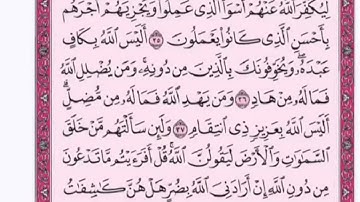 لِيُكَفِّرَ ٱللَّهُ عَنْهُمْ أَسْوَأَ ٱلَّذِى عَمِلُوا۟ وَيَجْزِيَهُمْ أَجْرَهُم
بِأَحْسَنِ ٱلَّذِى كَانُوا۟ يَعْمَلُونَ ٣٥ أَلَيْسَ ٱللَّهُ بِكَافٍ
عَبْدَهُۥ ۖ وَيُخَوِّفُونَكَ بِٱلَّذِينَ مِن دُونِهِۦ ۚ وَمَن يُضْلِلِ ٱللَّهُ
فَمَا لَهُۥ مِنْ هَادٍ ٣٦ وَمَن يَهْدِ ٱللَّهُ فَمَا لَهُۥ مِن مُّضِلٍّ ۗ
أَلَيْسَ ٱللَّهُ بِعَزِيزٍ ذِى ٱنتِقَامٍ ٣٧ وَلَئِن سَأَلْتَهُم مَّنْ خَلَقَ
ٱلسَّمَٰوَٰتِ وَٱلْأَرْضَ لَيَقُولُنَّ ٱللَّهُ ۚ قُلْ أَفَرَءَيْتُم مَّا تَدْعُونَ
مِن دُونِ ٱللَّهِ إِنْ أَرَادَنِىَ ٱللَّهُ بِضُرٍّ هَلْ هُنَّ كَٰشِفَٰتُ